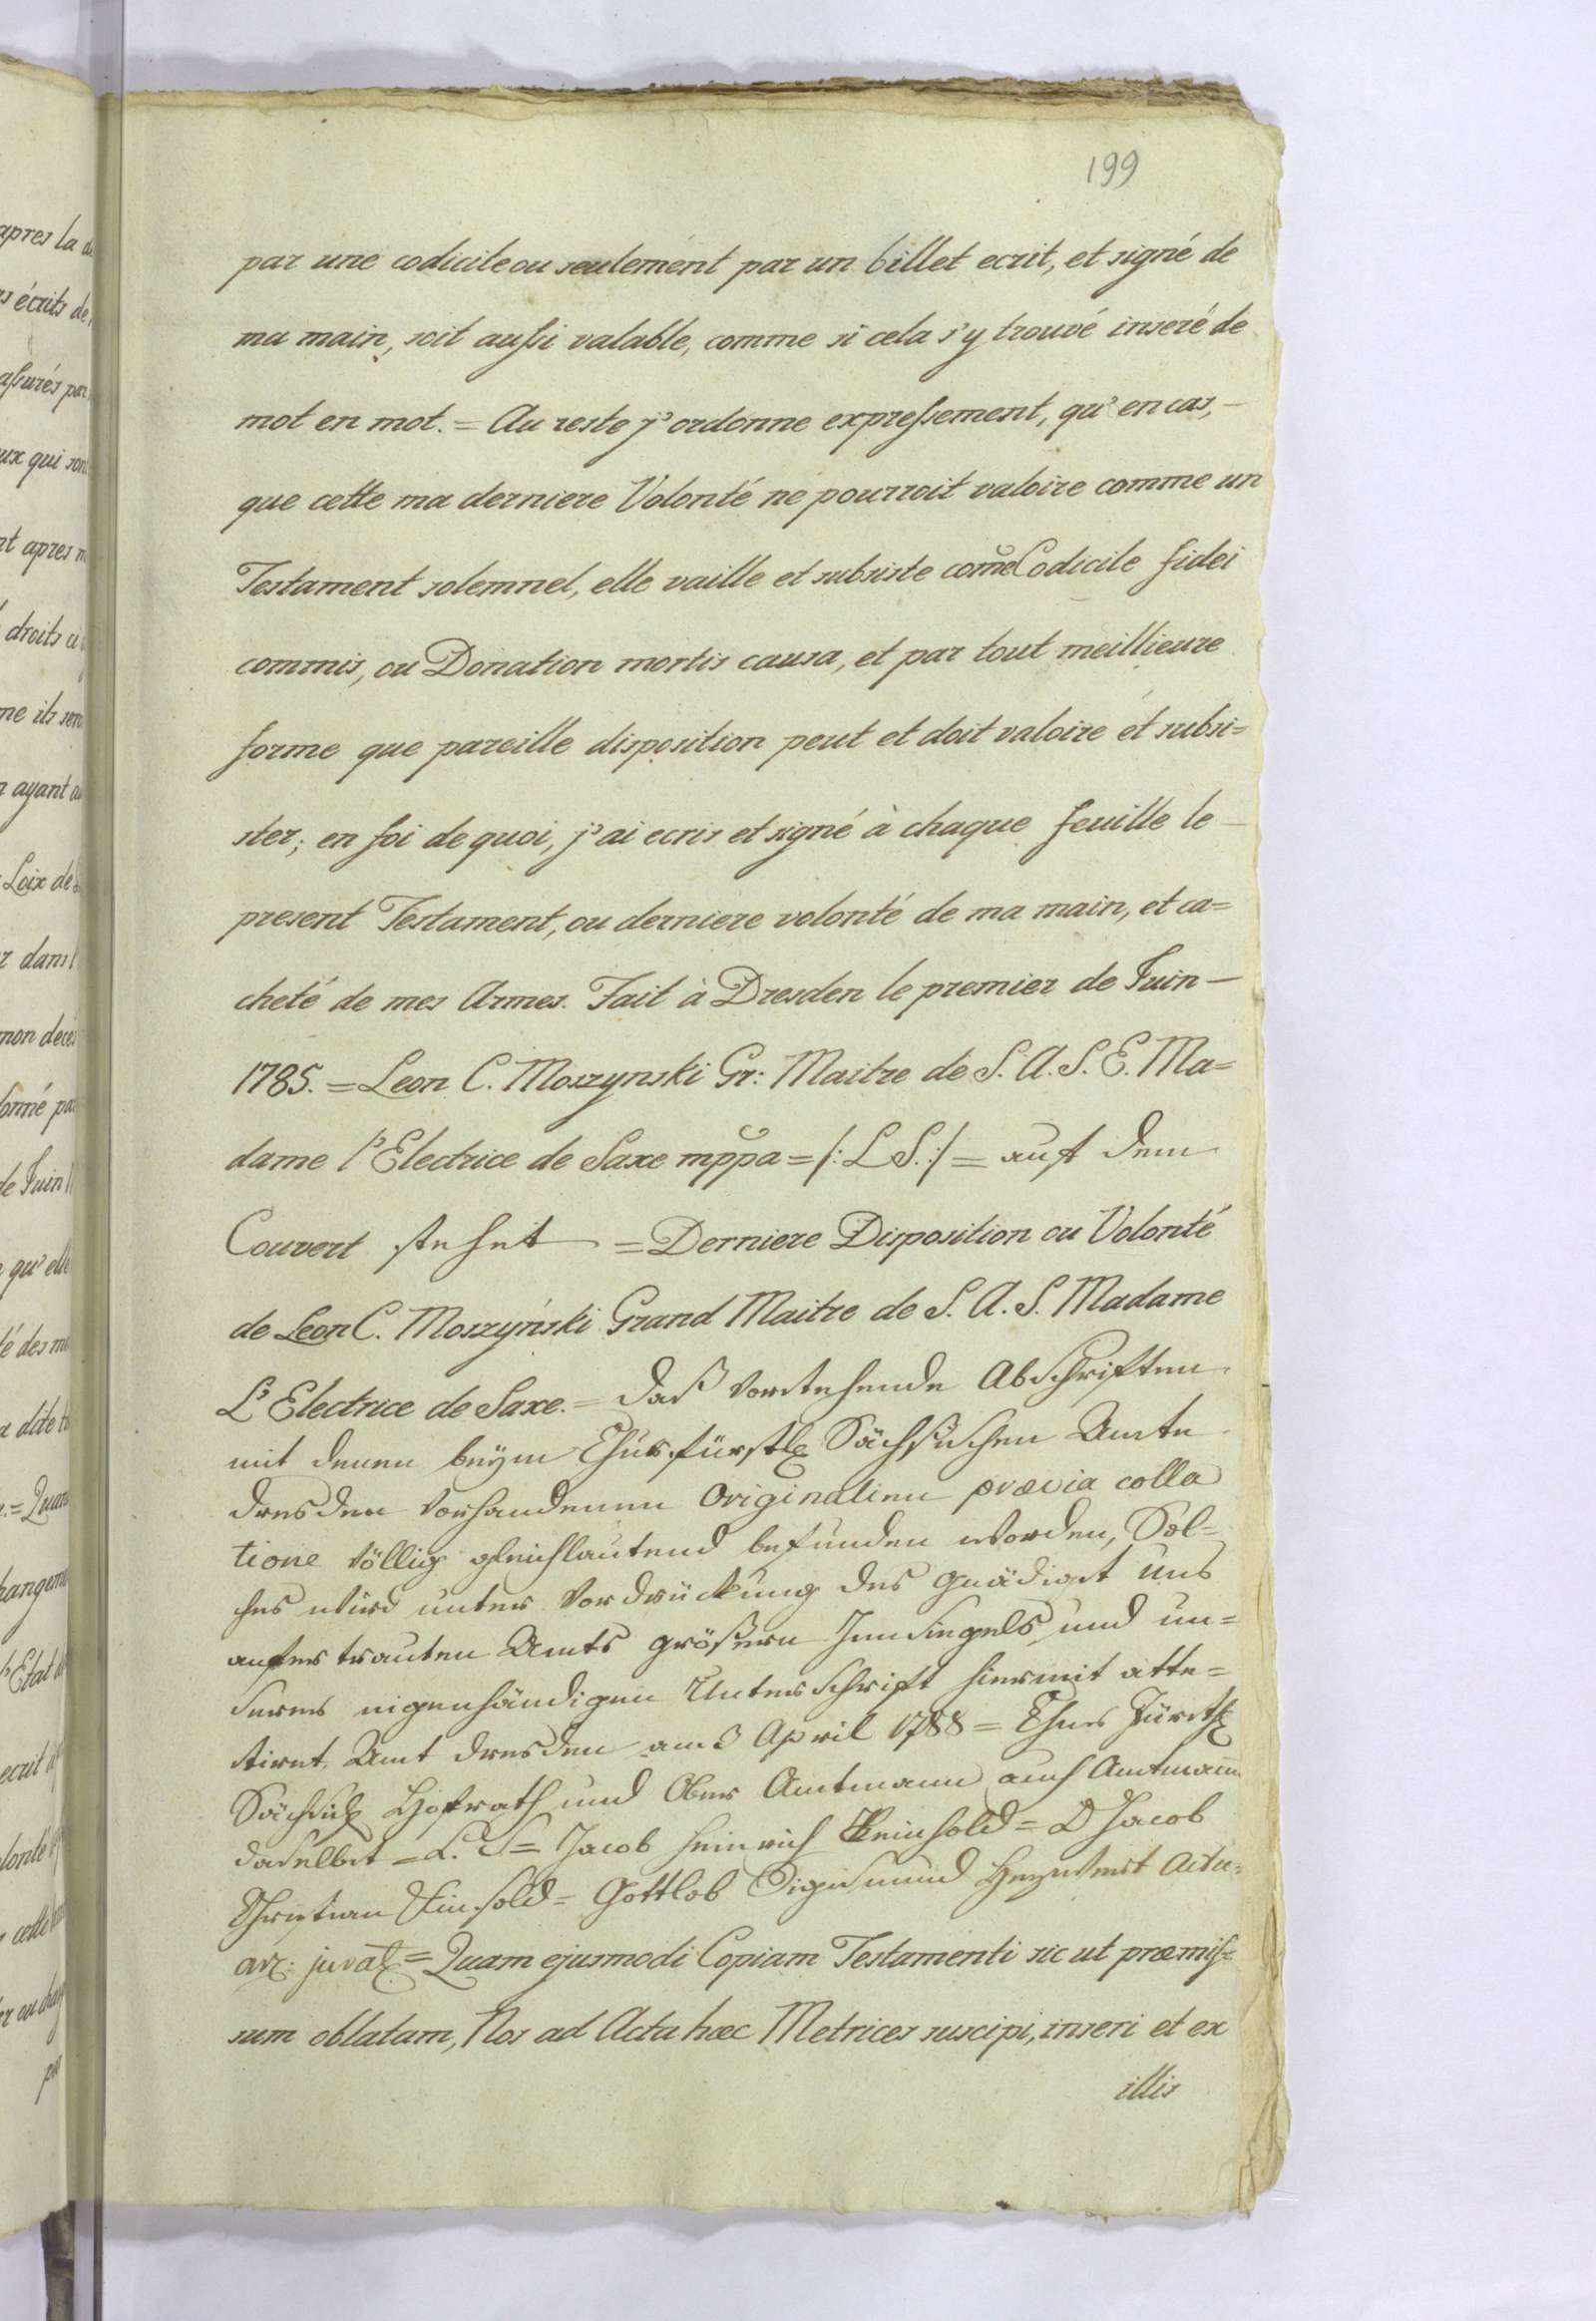 199
apres la
écrits de
assurés par
ux qui sont
t apres m
droits ci
me ils sero
ayant a
Loix de
r dans l
mon decés
donné pa
de Juin
qu'elle
té des m
dite
= Quan
hangeme
l'Etat
ecrit
lonté
cette
ou chan
par une codicile ou seulement par un billet ecrit, et signé de
ma main, soit aussi valable, comme si cela s'y trouvé inseré de
mot en mot. = Au reste j'ordonne expressement, qu'en cas, –
que cette ma derniere Volonté ne pourroit valoire comme un
Testament solemnel, elle vaille et subsiste come Codicile fidei
commis, ou Donation mortis causa, et par tout meillieure
forme que pareille disposition peut et doit valoire et subsi=
ster; en foi de quoi, j'ai ecris et signé à chaque feuille le –
present Testament, ou derniere volonté de ma main, et ca=
cheté de mes Armes. Fait à Dresden le premier de Juin –
1785. = Leon C. Moszynski Gr: Maitre de S. A. S. E. Ma=
dame l'Electrice de Saxe mppa = /: L S. :/ = auf dem
Couvert stehet = Derniere Disposition ou Volonté
de Leon C. Moszyński Grand Maitre de S. A. S. Madame
L'Electrice de Saxe. = Daß vorstehende Abschriften
mit denen beÿm Churfürstl. Sächsischen Amte
Dresden vorhandenen Originalien prævia colla
tione völlig gleichlautend befunden worden, Sol=
ches wird unter Vordrückung des gnädigst uns
anvertrauten Amts größern Innsiegels und un=
serer eigenhändigen Unterschrift hiermit atte=
stiret. Amt Dresden am 3 April 1788 = Chur Fürstl.
Sächsisch. Hofrath und Ober Amtmann auch Amtmann
daselbst = L. S = Jacob Heinrich Reinhold = D Jacob
Christian Reinhold = Gottlob Sigismund Actu=
ar: jurat. = Quam ejusmodi Copiam Testamenti sic ut præmiss=
sum oblatam, Nos ad Acta hæc Metrices suscipi, inseri et ex
illis